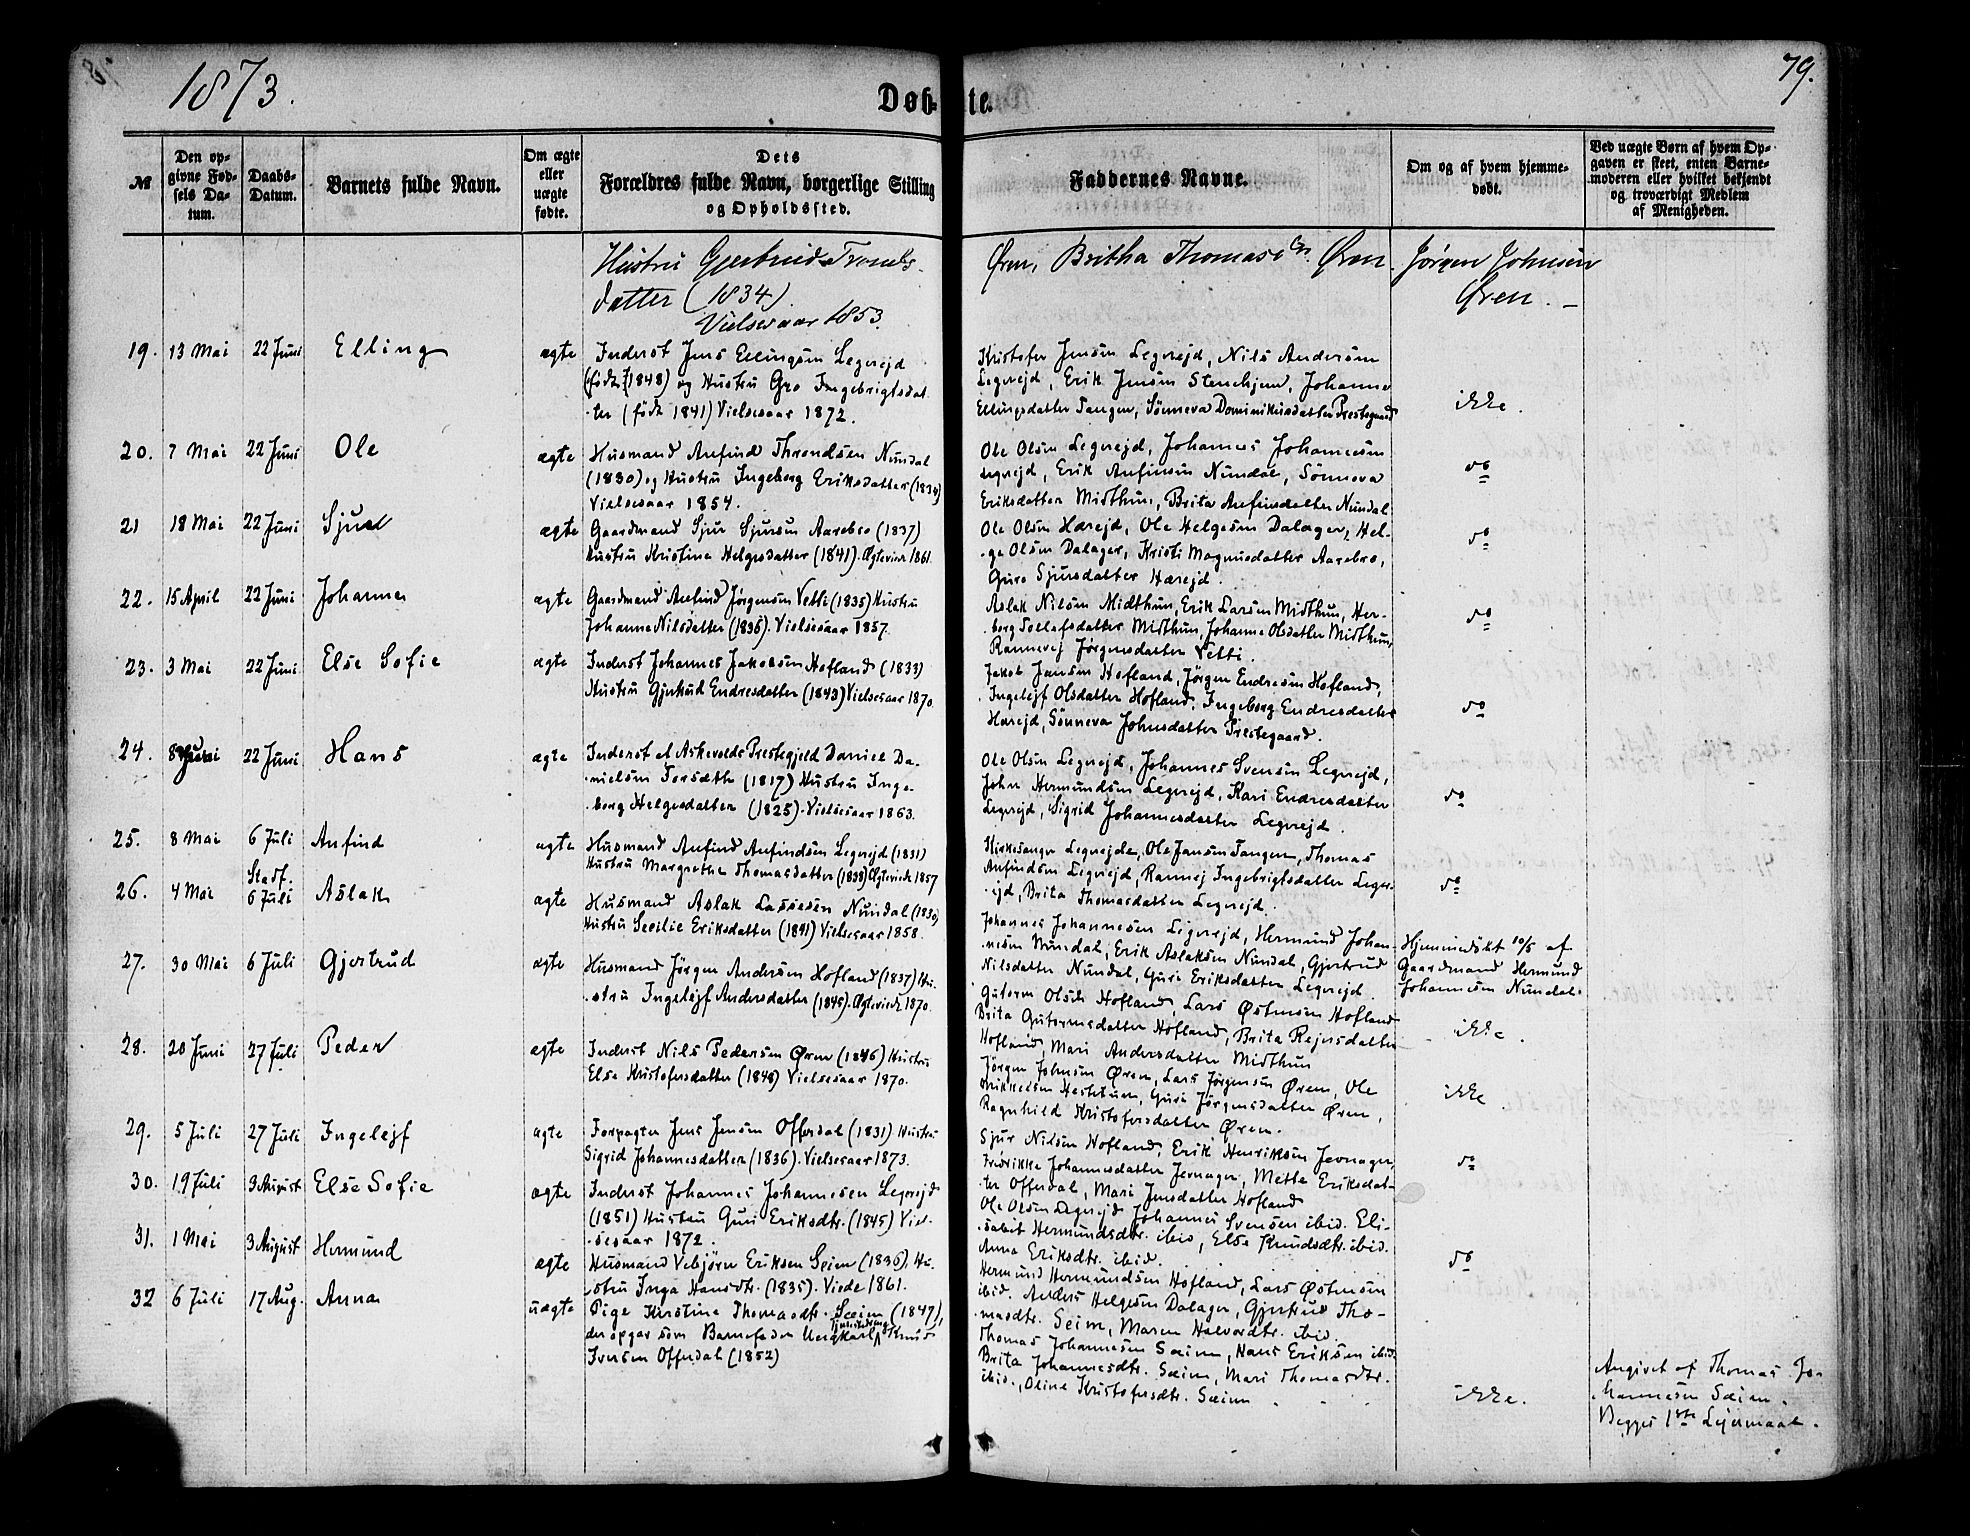 1873.
Døbte.
79.
№
Den opgivne Fødsels Datum.
Daabs-Datum.
Barnets fulde Navn.
Om ægte eller uægte fødte.
Dets Forældres fulde Navn, borgerlige Stilling og Opholdssted.
Faddernes Navne.
Om og af hvem hjemmedøbt.
Ved uægte Børn af hvem Opgaven er skeet, enten Barnemoderen eller hvilket bekjendt og troværdigt Medlem af Menigheden.
Hustru Gjertrud Tronds-
datter (1834).
Vielsesaar 1853.
Øren, Britha Thomasd. Øren.
Jørgen Johnsen
Øren. –
19. 13 Mai 22 Juni Elling ægte
Inderst Jens Ellingsen Legrejd
(født 1848) og Hustru Gro Ingebrigtsdat
ter (født 1841) Vielsesaar 1872.
Kristofer Jensen Legrejd, Nils Andersen
Legrejd, Erik Jensen Stenehjem, Johanne
Ellingsdatter Tangen, Sønneva Dominikusdatter Prestegaard
ikke.
20. 7 Mai 22 Juni Ole ægte
Husmand Anfind Throndsen Nundal
(1830) og Hustru Ingeborg Eriksdatter (1834)
Vielsesaar 1854.
Ole Olsen Legrejd, Johannes Johannesen
Legrejd, Erik Anfinsen Nundal, Sønneva
Eriksdatter Midthun, Brita Anfinsdatter Nundal
do
21 18 Mai 22 Juni Sjur ægte
Gaardmand Sjur Sjursen Aarebro (1837)
Hustru Kristina Helgesdatter (1841). Ægteviede 1861.
Ole Olsen Hærejd, Ole Helgesen Dalager, Hel-
ge Olsen Dalager, Kristi Magnusdatter Aarebro,
Guro Sjursdatter Hærejd.
do
22. 15 April 22 Juni Johannes ægte
Gaardmand Anfind Jørgensen Vetti (1835) Hustru
Johanna Nilsdatter (1836). Vielsesaar 1857.
Aslak Nilsen Midthun, Erik Larsen Midthun, Her-
borg Tollefsdatter Midthun, Johanna Olsdatter Midthun,
Rannevej Jørgensdatter Vetti.
do
23. 3 Mai 22 Juni Else Sofie ægte
Inderst Johannes Jakobsen Hofland (1833)
Hustru Gjertrud Endresdatter (1843) Vielsesaar 1870.
Jakob Jansen Hofland, Jørgen Endresen Hofland,
Ingelejf Olsdatter Hofland, Ingeborg Endresdatter
Hærejd, Sønneva Johnsdatter Prestegaard.
do
24. 8 Juni 22 Juni Hans ægte
Inderst af Askevolds Prestegjeld Daniel Da-
nielsen Forsæth (1817) Hustru Inge-
borg Helgesdatter (1825). Vielsesaar 1863.
Ole Olsen Legrejd, Johannes Svensen Legrejd,
John Hermundsen Legrejd, Kari Endresdatter
Legrejd, Sigrid Johannesdatter Legrejd.
do
25. 8 Mai 6 Juli Anfind ægte
Husmand Anfind Anfindsen Legrejd (1831)
Hustru Margrethe Thomasdatter (1833) Ægteviede 1857
Kirkesanger Legrejde, Ole Jansen Tangen, Thomas
Anfindsen Legrejd, Rannej Ingebrigtsdatter Legr-
ejd, Brita Thomasdatter Legrejd.
do
26. 4 Mai Stadf. 6 Juli Aslak ægte
Husmand Aslak Lassesen Nundal (1830)
Hustru Secilie Eriksdatter (1841) Vielsesaar 1858.
Johannes Johannesen Legrejd, Hermund Johan-
nesen Nundal, Erik Aslaksen Nundal, Gjertrud
Nilsdatter Nundal, Guri Eriksdatter Legrejd.
Hjemmedøbt 10/5 af
Gaardmand Hermund
Johannesen Nundal.
27. 30 Mai 6 Juli Gjertrud ægte
Husmand Jørgen Andersen Hofland (1837) Hu-
stru Ingelejf Andersdatter (1845). Ægteviede 1870.
Gutorm Olsen Hofland, Lars Østensen Hofland
Brita Gutormsdatter Hofland, Brita Rejersdatter
Hofland, Mari Andersdatter Midthun
ikke.
28. 20 Juni 27 Juli Peder ægte
Inderst Nils Pedersen Øren (1846) Hustru
Else Kristofersdatter (1848) Vielsesaar 1870.
Jørgen Johnsen Øren, Lars Jørgensen Øren, Ole
Mikkelsen Hestetuen, Guri Jørgensdatter Øren,
Ragnhild Kristofersdatter Øren.
ikke.
29. 5 Juli 27 Juli Ingelejf ægte
Forpagter Jens Jensen Offerdal (1831) Hustru
Sigrid Johannesdatter (1836). Vielsesaar 1873.
Sjur Nilsen Hofland, Erik Henriksen Jevnager,
Fredrikke Johannesdatter Jevnager, Mette Eriksdat-
ter Offerdal, Mari Jensdatter Hofland
do
30. 19 Juli 3 August Else Sofie ægte
Inderst Johannes Johannesen Legrejd
(1851) Hustru Guri Eriksdtr. (1845) Viel-
sesaar 1872.
Ole Olsen Legrejd, Johannes Svensen ibid. Eli-
sabet Hermundsdtr. ibid, Else Knudsdtr. ibid.
Anna Eriksdtr. ibid.
31. 1 Mai 3 August Hermund ægte
Husmand Vebjørn Eriksen Seim (1836), Hu-
stru Inga Hansdtr. (1835). Viede 1861.
Hermund Hermundsen Hofland, Lars Østensen
ibid. Anders Helgesen Dalager, Gjertrud Tho-
masdtr. Seim, Maren Halvordtr. ibid.
do
32 6 Juli 17 Aug. Anna uægte
Pige Kirstine Thomasdtr. Sæim (1847),
der opgav som Barnefader Ungkarl Knud
Iversen Offerdal (1852)
Thomas Johannesen Sæim, Hans Eriksen ibid.
Brita Johannesdtr. Sæim, Mari Thomasdtr.
ibid., Oline Kristofersdtr. Sæim
ikke.
Angivet af Thomas Jo-
hannesen Sæim.
Begges 1ste Lejermaal.